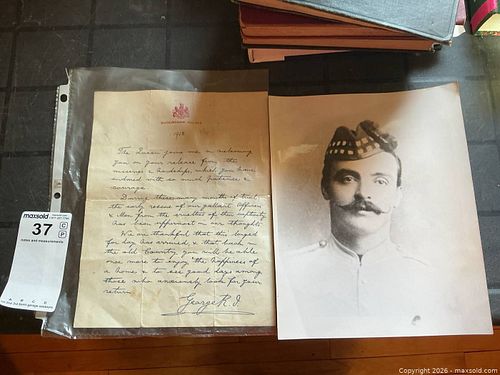 BUCKINGHAM PALACE
1918
The Queen joins me in welcoming
you on your release from the
miseries & hardships, which you have
endured with so much patience &
courage.
During these many months of trial
the early rescue of our gallant Officers
& Men from the cruelties of their captivity
has been uppermost in our thoughts.
We are thankful that this longed
for day has arrived, & that back in
the old Country you will be able
once more to enjoy the happiness of
a home & to see good days among
those who anxiously look for your
return.
George R.I.
maxsold
37
notes and measurements
A B C D
Copyright 2026 - maxsold.com